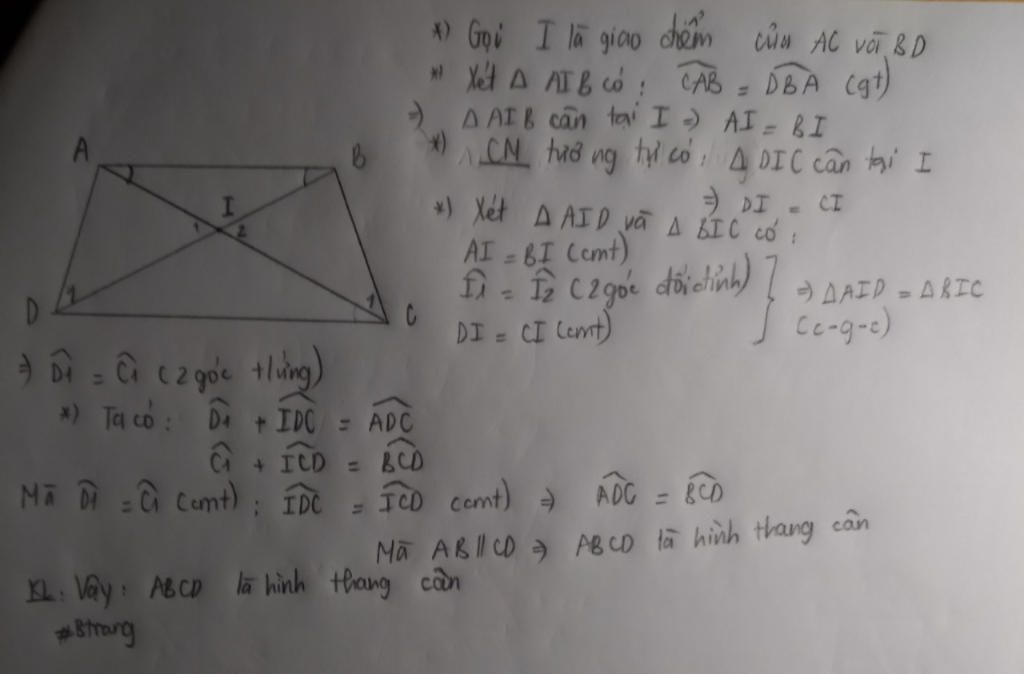 *) Gọi I là giao điểm của AC với BD
*) Xét Δ AIB có : \widehat{CAB} = \widehat{DBA} (gt)
=) Δ AIB cân tại I => AI = BI
*) CN tương tự có : Δ DIC cân tại I
=) DI = CI
*) Xét Δ AID và Δ BIC có :
AI = BI (cmt)
\widehat{I1} = \widehat{I2} (2 góc đối đỉnh) } => Δ AID = Δ BIC
DI = CI (cmt) (c-g-c)
A B
I
1 2
1 1
D C
=) \widehat{D1} = \widehat{C1} (2 góc tứ ứng)
*) Ta có : \widehat{D1} + \widehat{IDC} = \widehat{ADC}
\widehat{C1} + \widehat{ICD} = \widehat{BCD}
Mà \widehat{D1} = \widehat{C1} (cmt) ; \widehat{IDC} = \widehat{ICD} (cmt) => \widehat{ADC} = \widehat{BCD}
Mà AB // CD => ABCD là hình thang cân
KL : Vậy : ABCD là hình thang cân
#Btrang